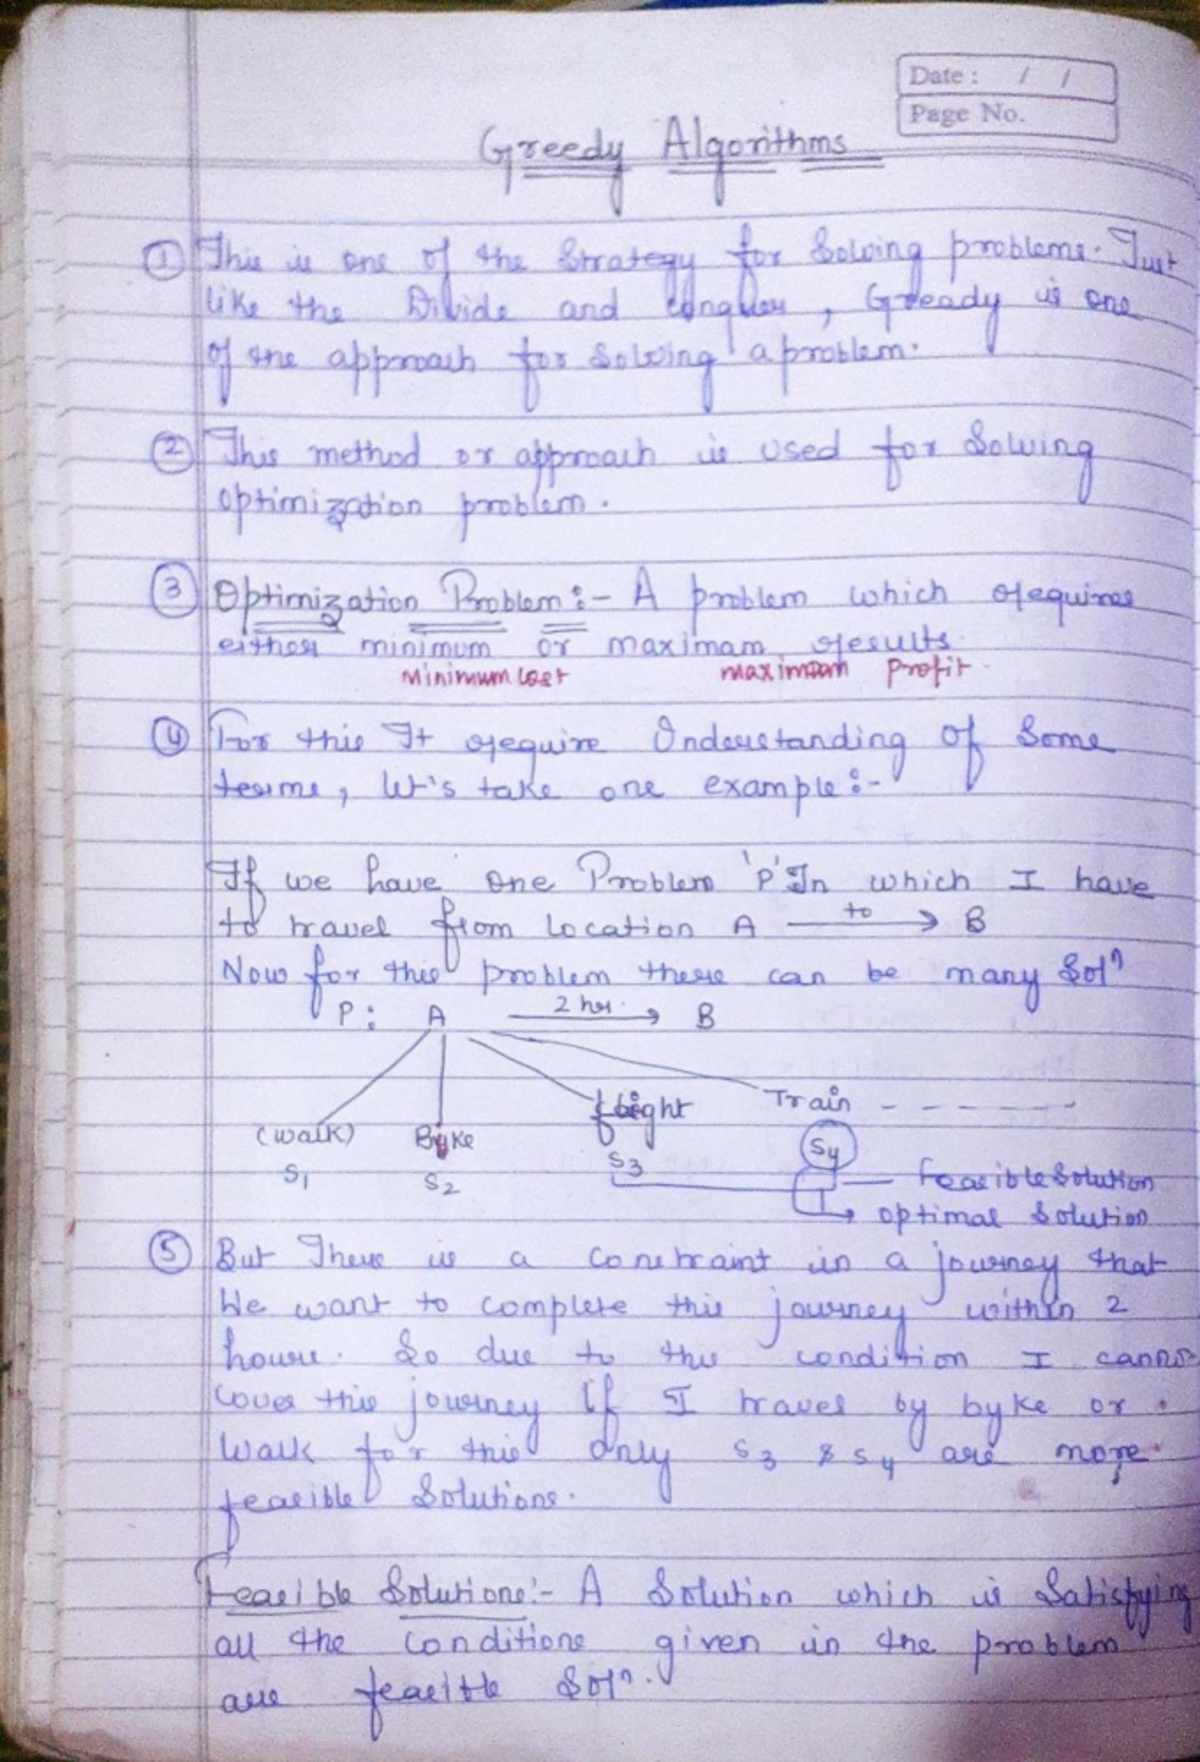 Date : / /
Page No.
Greedy Algorithms
① This is one of the Strategy for Solving problems. Just
like the Divide and Conquer, Greedy is one
of the approach for Solving a problem.
② This method or approach is used for Solving
optimization problem.
③ Optimization Problem :- A problem which requires
either minimum or maximam results.
Minimum Cost maximum profit.
④ For this It require Understanding of Some
terms, let's take one example :-
If we have one Problem 'P' In which I have
to travel from location A to → B
Now for this problem there can be many Solⁿ
P : A 2 hr. → B
(Walk) Byke flight Train - - - - - -
S1 S2 S3 S4
feasible Solution
optimal Solution
⑤ But There is a constraint in a journey that
We want to complete this journey within 2
hours. So due to this condition I cannot
cover this journey if I travel by byke or
walk for this only S3 & S4 are more
feasible Solutions.
Feasible Solutions :- A Solution which is Satisfying
all the conditions given in the problem
are feasible Solⁿ.